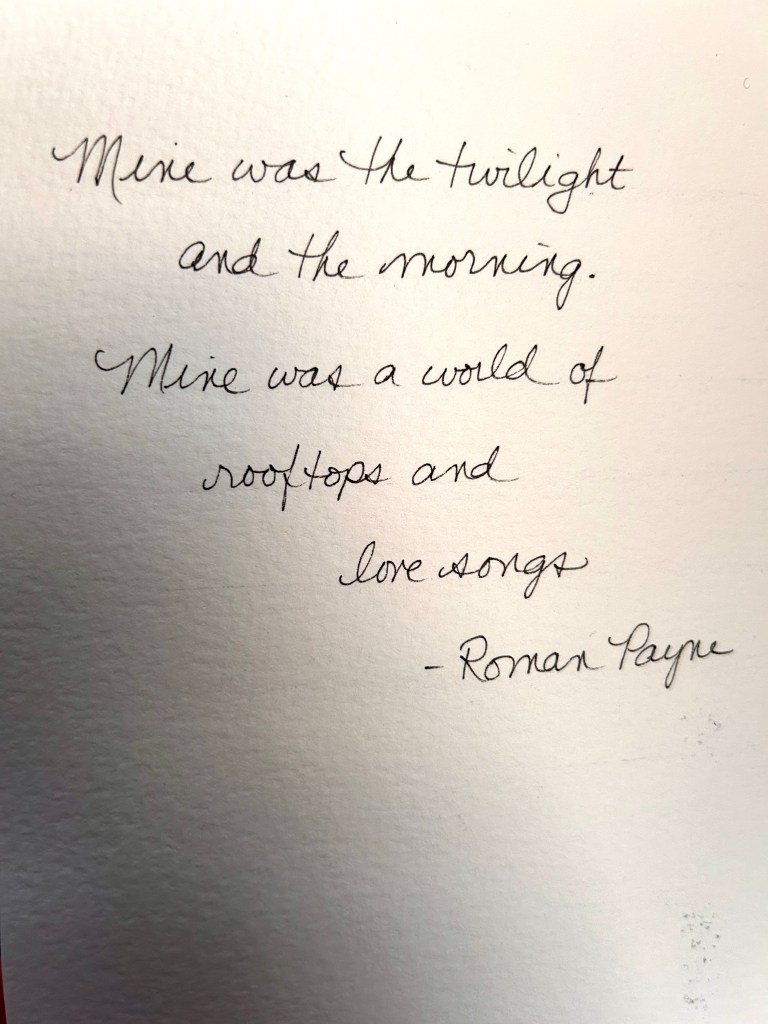 Mine was the twilight
and the morning.
Mine was a world of
rooftops and
love songs
- Roman Payne